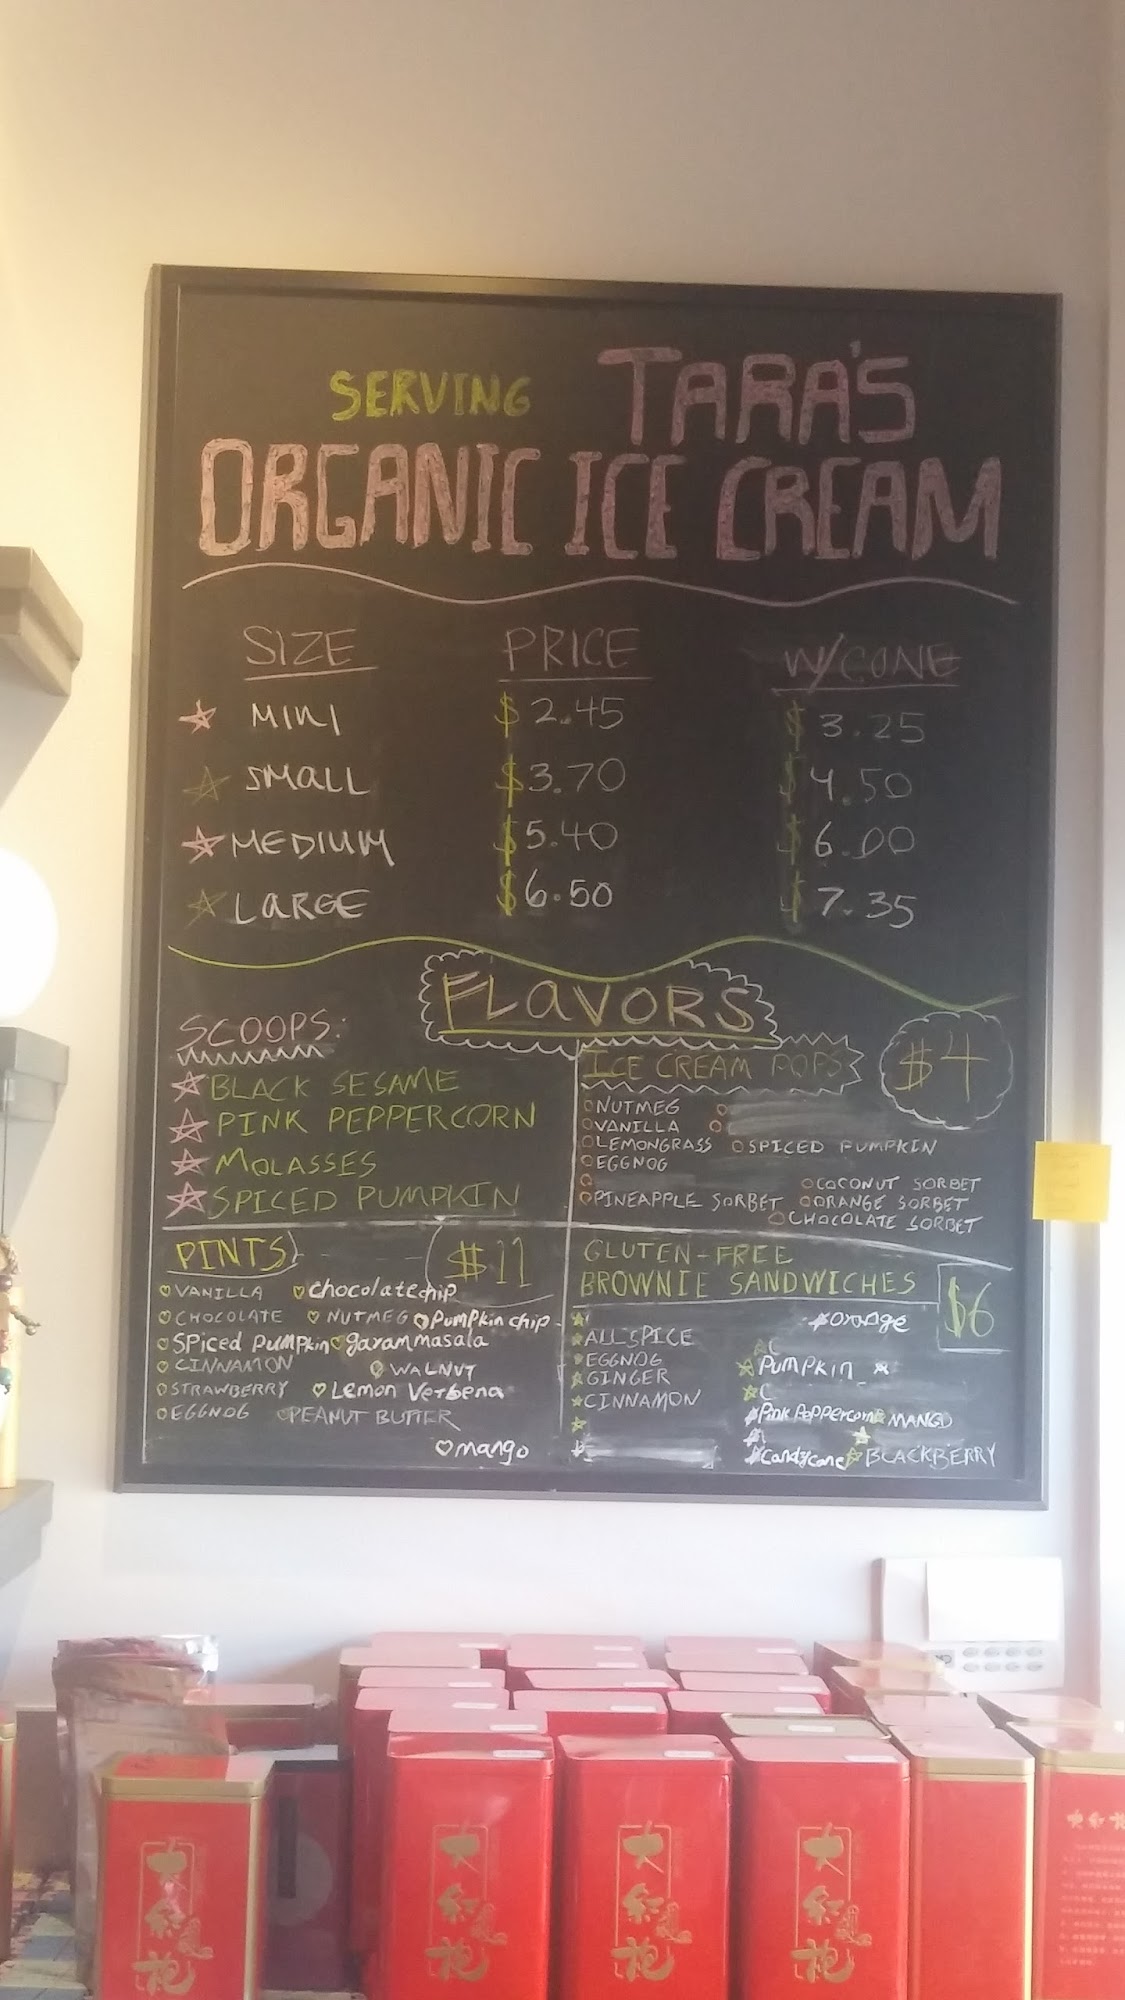 SERVING TARA'S
ORGANIC ICE CREAM
SIZE PRICE W/CONE
MINI $2.45 $3.25
SMALL $3.70 $4.50
MEDIUM $5.40 $6.00
LARGE $6.50 $7.35
FLAVORS
SCOOPS:
BLACK SESAME
PINK PEPPERCORN
MOLASSES
SPICED PUMPKIN
ICE CREAM POPS $4
NUTMEG
VANILLA
LEMONGRASS SPICED PUMPKIN
EGGNOG
COCONUT SORBET
PINEAPPLE SORBET ORANGE SORBET
CHOCOLATE SORBET
PINTS $11
VANILLA chocolate chip
CHOCOLATE NUTMEG PUMPKin chip
SPiced PUMPKin garam masala
CINNAMON WALNUT
STRAWBERRY Lemon Verbena
EGGNOG PEANUT BUTTER
mango
GLUTEN-FREE
BROWNIE SANDWICHES $6
orange
ALLSPICE
EGGNOG PUMPKIN
GINGER
CINNAMON
Pink Peppercorn MANGO
Candycane BLACKBERRY
大红袍
大红袍
大红袍
大红袍